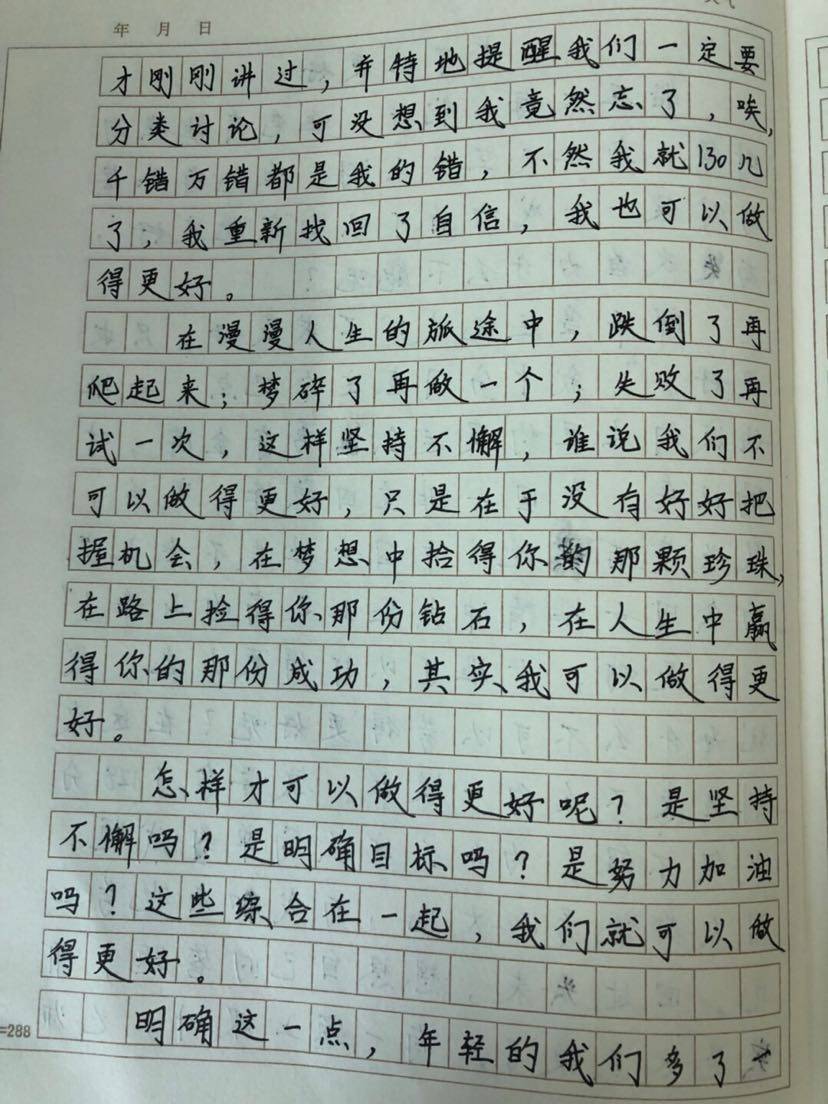 年 月 日
才刚刚讲过，并特地提醒我们一定要
分类讨论，可没想到我竟然忘了，唉，
千错万错都是我的错，不然我就130几
了，我重新找回了自信，我也可以做
得更好。
在漫漫人生的旅途中，跌倒了再
爬起来；梦碎了再做一个；失败了再
试一次，这样坚持不懈，谁说我们不
可以做得更好，只是在于没有好好把
握机会，在梦想中拾得你的那颗珍珠，
在路上捡得你那份钻石，在人生中赢
得你的那份成功，其实、我可以做得更
好。
怎样才可以做得更好呢？是坚持
不懈吗？是明确目标吗？是努力加油
吗？这些综合在一起，我们就可以做
得更好。
=288
明确这一点，年轻的我们多了一